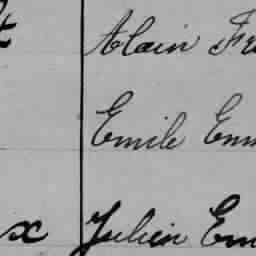 t Alain Fr
Emile Em
x Julien Em